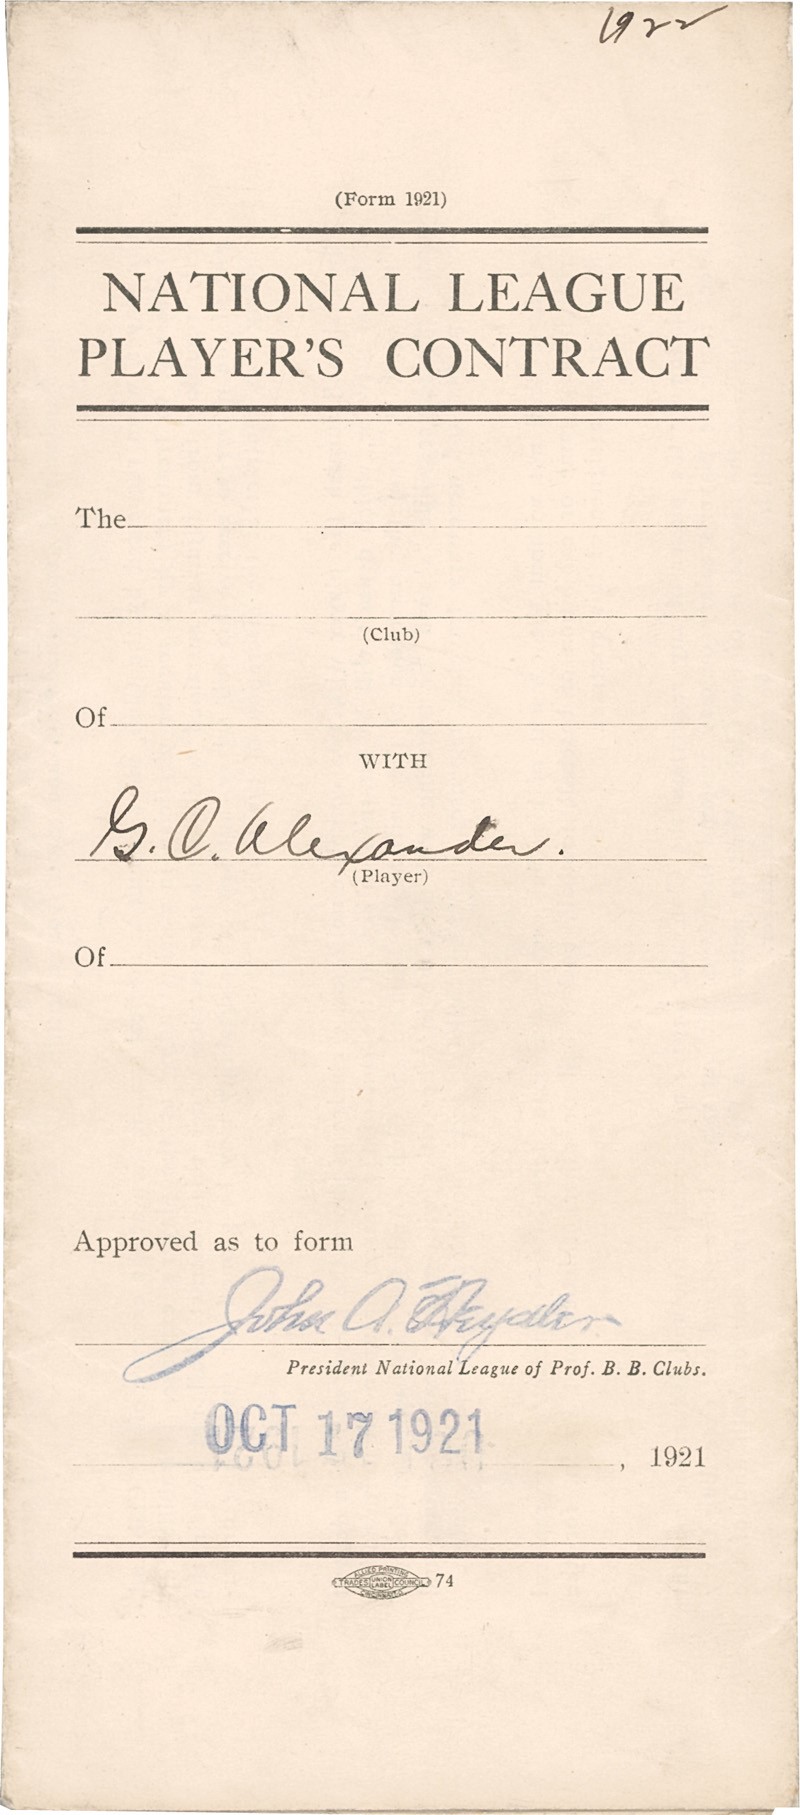 1922
(Form 1921)
NATIONAL LEAGUE
PLAYER'S CONTRACT
The
(Club)
Of
WITH
G. C. Alexander.
(Player)
Of
Approved as to form
John A. Heydler
President National League of Prof. B. B. Clubs.
OCT 17 1921
, 1921
ALLIED PRINTING
TRADES UNION LABEL COUNCIL
CINCINNATI
74